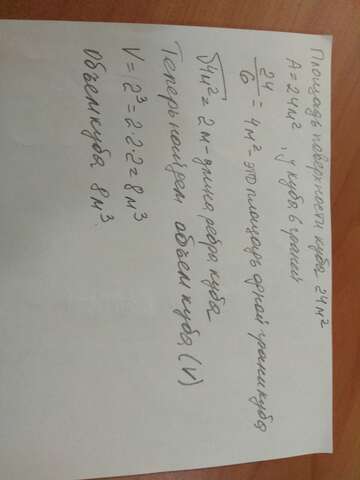 Площадь поверхности куба 24 м²
A = 24 м², у куба 6 граней
24/6 = 4 м² - это площадь одной грани куба
√4м² = 2 м - длина ребра куба
Теперь найдем объем куба (V)
V = 2³ = 2·2·2 = 8 м³
Объем куба 8 м³.